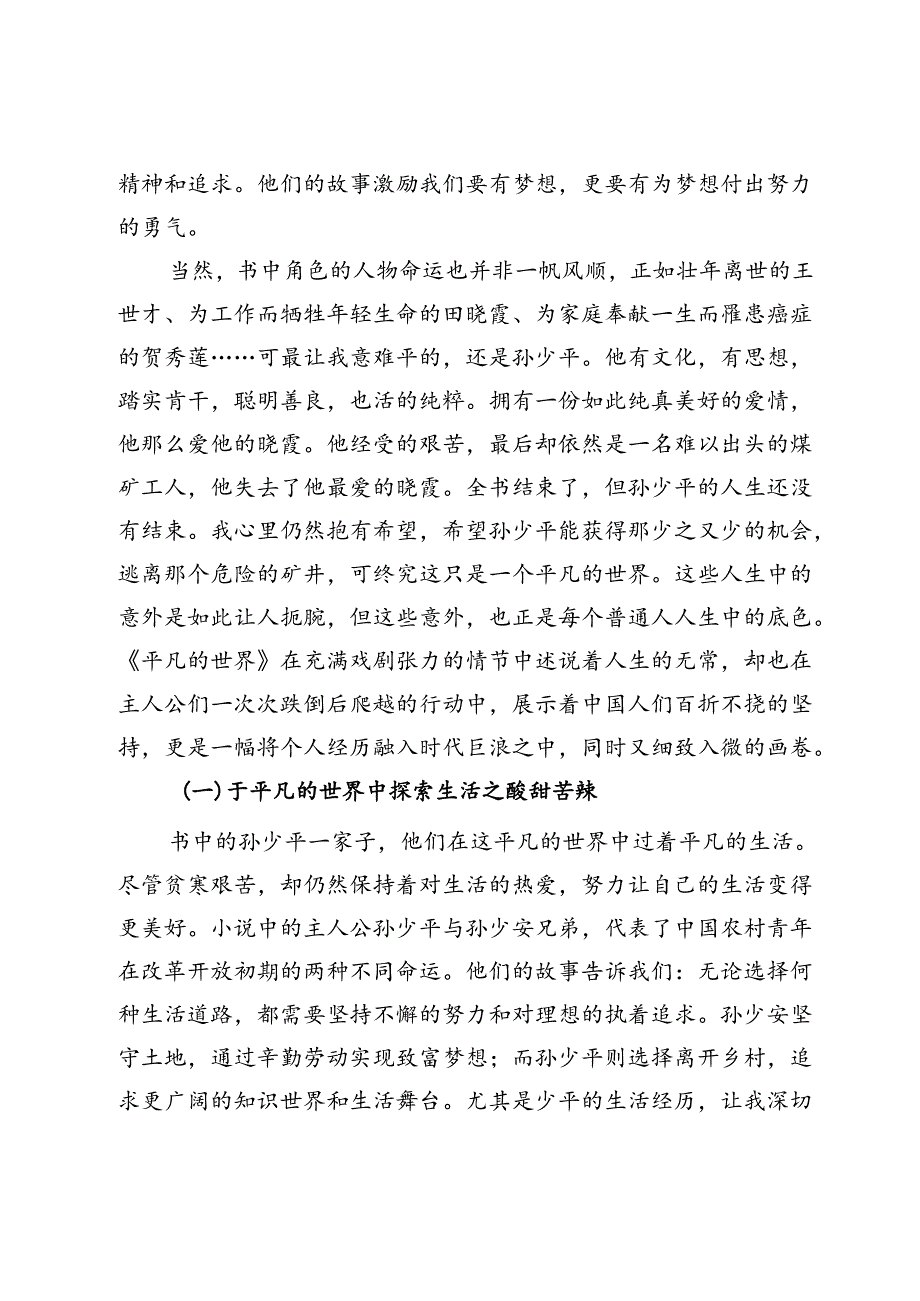 精神和追求。他们的故事激励我们要有梦想，更要有为梦想付出努力
的勇气。
当然，书中角色的人物命运也并非一帆风顺，正如壮年离世的王
世才、为工作而牺牲年轻生命的田晓霞、为家庭奉献一生而罹患癌症
的贺秀莲……可最让我意难平的，还是孙少平。他有文化，有思想，
踏实肯干，聪明善良，也活的纯粹。拥有一份如此纯真美好的爱情，
他那么爱他的晓霞。他经受的艰苦，最后却依然是一名难以出头的煤
矿工人，他失去了他最爱的晓霞。全书结束了，但孙少平的人生还没
有结束。我心里仍然抱有希望，希望孙少平能获得那少之又少的机会，
逃离那个危险的矿井，可终究这只是一个平凡的世界。这些人生中的
意外是如此让人扼腕，但这些意外，也正是每个普通人人生中的底色。
《平凡的世界》在充满戏剧张力的情节中述说着人生的无常，却也在
主人公们一次次跌倒后爬越的行动中，展示着中国人们百折不挠的坚
持，更是一幅将个人经历融入时代巨浪之中，同时又细致入微的画卷。
(一)于平凡的世界中探索生活之酸甜苦辣
书中的孙少平一家子，他们在这平凡的世界中过着平凡的生活。
尽管贫寒艰苦，却仍然保持着对生活的热爱，努力让自己的生活变得
更美好。小说中的主人公孙少平与孙少安兄弟，代表了中国农村青年
在改革开放初期的两种不同命运。他们的故事告诉我们：无论选择何
种生活道路，都需要坚持不懈的努力和对理想的执着追求。孙少安坚
守土地，通过辛勤劳动实现致富梦想；而孙少平则选择离开乡村，追
求更广阔的知识世界和生活舞台。尤其是少平的生活经历，让我深切